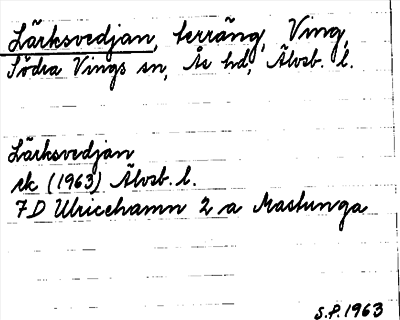 Lärksvedjan, terräng, Ving,
Södra Vings sn, Ås hd, Älvsb. l.
Lärksvedjan
rk (1963) Älvsb. l.
7D Ulricehamn 2 a Mastunga
S.P. 1963